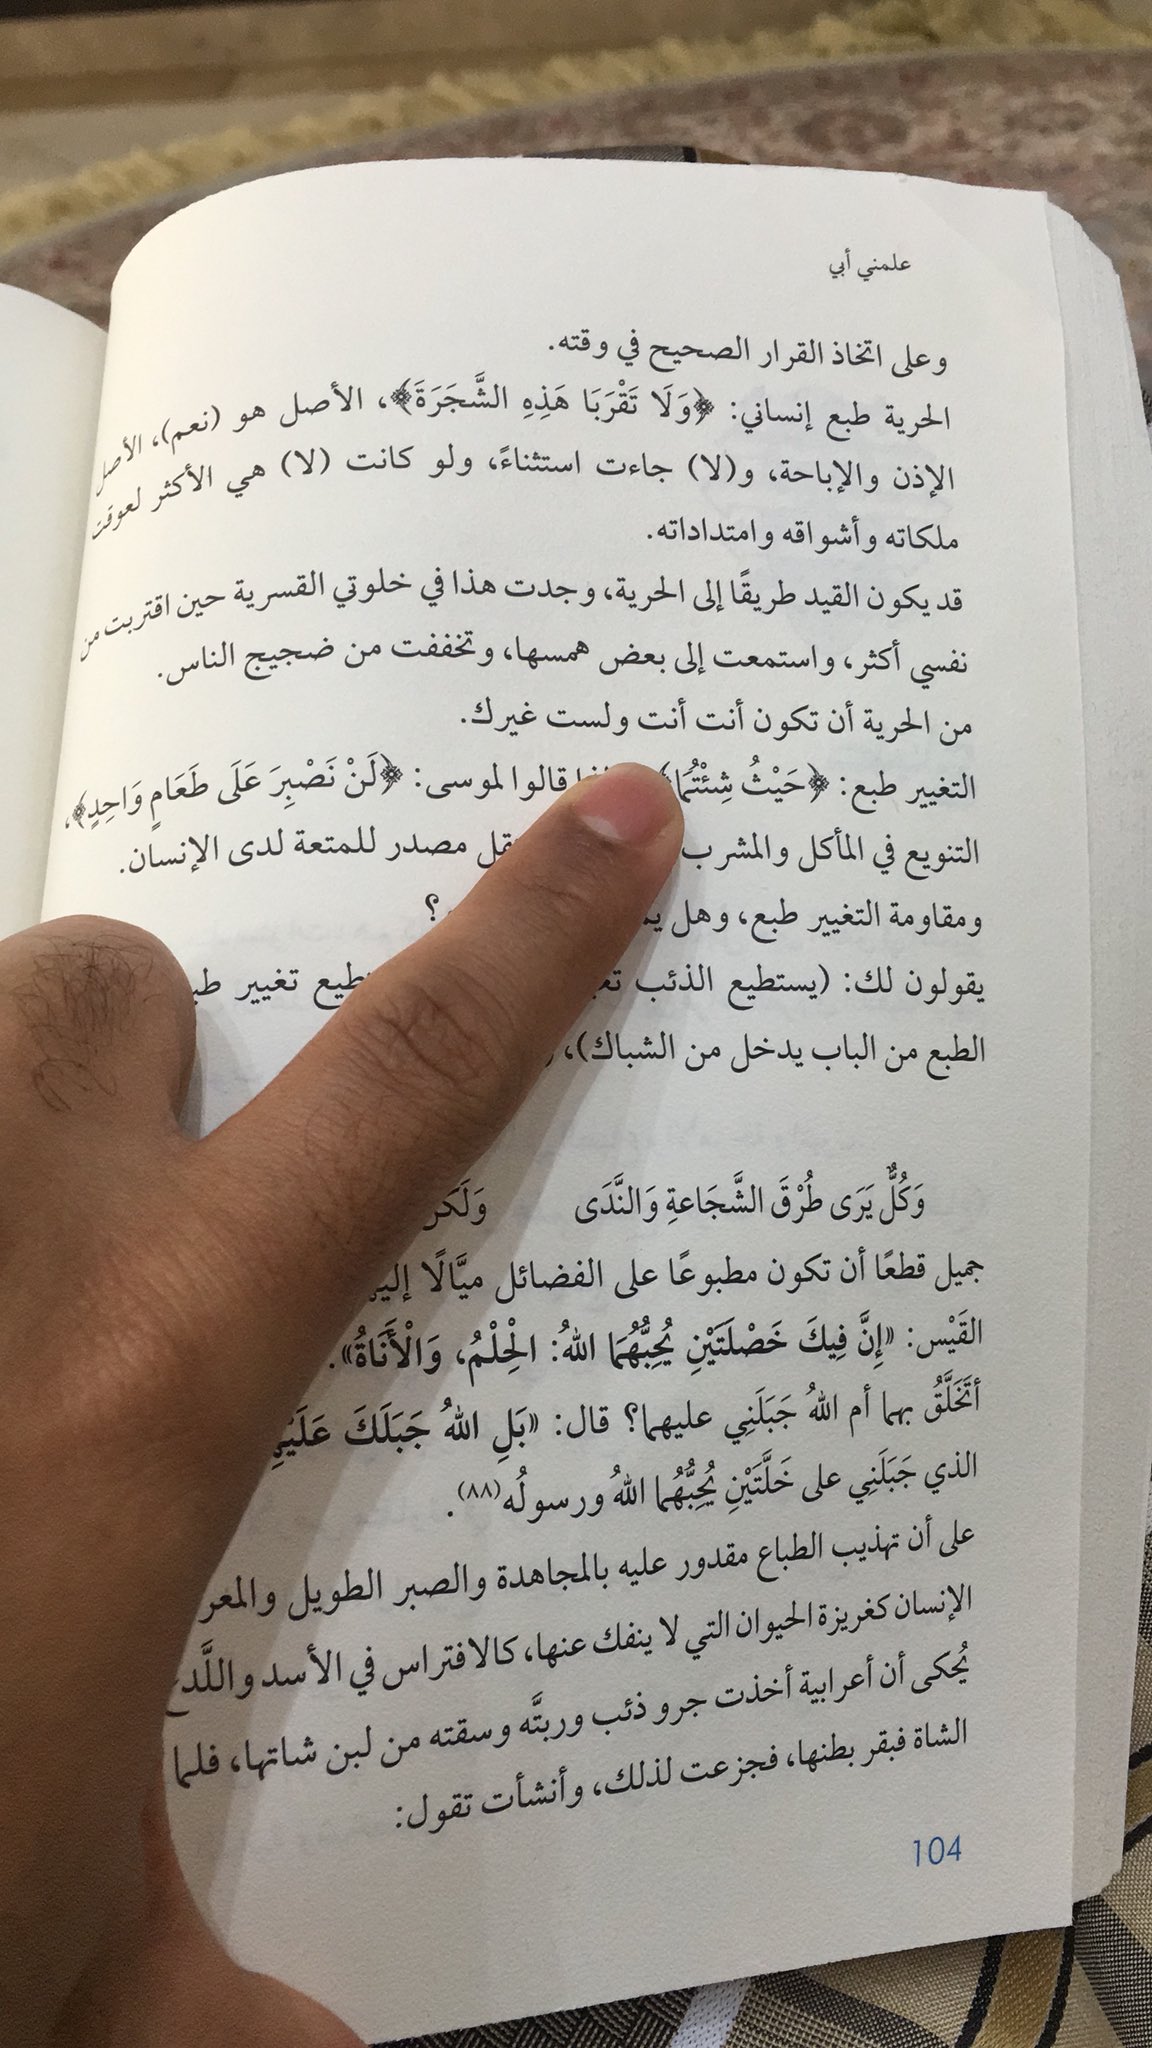 علمني أبي
وعلى اتخاذ القرار الصحيح في وقته.
الحرية طبع إنساني: ﴿وَلَا تَقْرَبَا هَذِهِ الشَّجَرَةَ﴾، الأصل هو (نعم)، الأصل
الإذن والإباحة، و(لا) جاءت استثناءً، ولو كانت (لا) هي الأكثر لعوقت
ملكاته وأشواقه وامتداداته.
قد يكون القيد طريقًا إلى الحرية، وجدت هذا في خلوتي القسرية حين اقتربت من
نفسي أكثر، واستمعت إلى بعض همسها، وتخففت من ضجيج الناس.
من الحرية أن تكون أنت أنت ولست غيرك.
التغيير طبع: ﴿حَيْثُ شِئْتُمَا﴾ قالوا لموسى: ﴿لَنْ نَصْبِرَ عَلَى طَعَامٍ وَاحِدٍ﴾،
التنويع في المأكل والمشرب مصدر للمتعة لدى الإنسان.
ومقاومة التغيير طبع، وهل ؟
يقولون لك: (يستطيع الذئب تغيير
الطبع من الباب يدخل من الشباك)،
وَكُلٌّ يَرَى طُرْقَ الشَّجَاعةِ وَالنَّدَى
جميل قطعًا أن تكون مطبوعًا على الفضائل ميَّالًا
القَيْس: «إِنَّ فِيكَ خَصْلَتَيْنِ يُحِبُّهُمَا اللهُ: الْحِلْمُ، وَالْأَنَاةُ».
أتَخَلَّقُ بهما أم اللهُ جَبَلَنِي عليهما؟ قال: «بَلِ اللهُ جَبَلَكَ
الذي جَبَلَنِي على خَلَّتَيْنِ يُحِبُّهُما اللهُ ورسولُه(٨٨).
على أن تهذيب الطباع مقدور عليه بالمجاهدة والصبر الطويل
الإنسان كغريزة الحيوان التي لا ينفك عنها، كالافتراس في الأسد
يُحكى أن أعرابية أخذت جرو ذئب وربتَّه وسقته من لبن شاتها، فلما
الشاة فبقر بطنها، فجزعت لذلك، وأنشأت تقول:
104